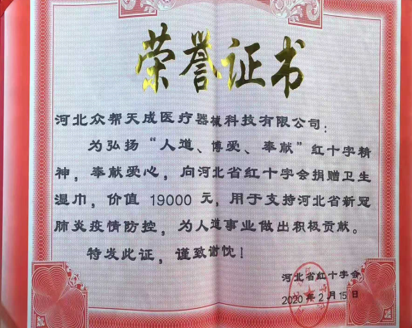 荣誉证书
河北众帮天成医疗器械科技有限公司：
为弘扬“人道、博爱、奉献”红十字精
神，奉献爱心，向河北省红十字会捐赠卫生
湿巾，价值 19000 元，用于支持河北省新冠
肺炎疫情防控，为人道事业做出积极贡献。
特发此证，谨致谢忱！
河北省红十字会
2020年2月15日